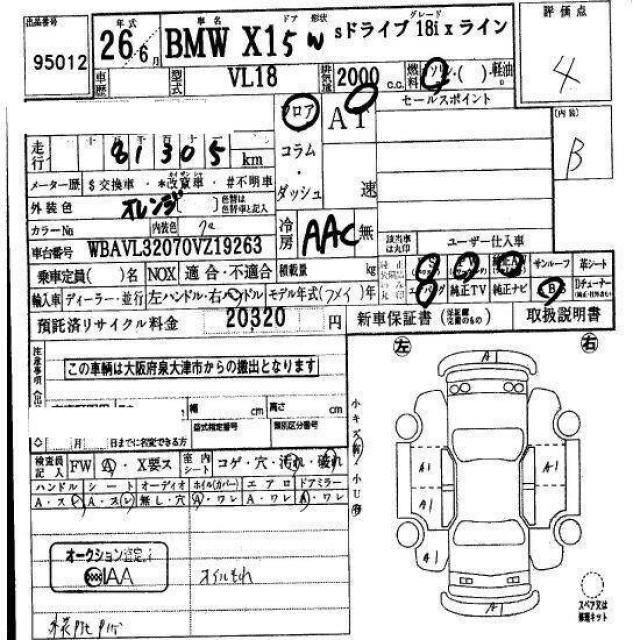 出品番号 95012
年式 26年6月
車名 BMW X1
ドア 形状 5 W
グレード sドライブ 18i xライン
評価点 4
車歴
型式 VL18
排気量 2000 c.c.
燃料 ガソリン・( )・軽油
走行 81305 km
フロア コラム・ダッシュ
AT 速
セールスポイント
[内装] B
メーター歴 $ 交換車・*改竄車・#不明車
外装色 オレンジ [ ] 色替は色替車と記入
カラーNo 内装色
冷房 AAC 無
該当車は丸印
ユーザー仕入車
車台番号 WBAVL32070VZ19263
乗車定員( )名 NOX 適合・不適合 積載量 kg
サンルーフ 革シート
輸入車 ディーラー・並行 左ハンドル・右ハンドル モデル年式(フメイ)年
エアバッグ 純正TV 純正ナビ
預託済リサイクル料金 20320 円
新車保証書 (保証書記載のもの) 取扱説明書
注意事項
この車輌は大阪府泉大津市からの搬出となります
左 右
幅 cm 高さ cm
型式指定番号 類別区分番号
月 日までに名変できる方
小キズ有 小U有
検査員記入 FW A・X要ス
室内シート コゲ・穴・汚れ・破れ
ハンドル シート オーディオ ホイル(カバー) エアロ ドアミラー
A・スレ A・スレ 無し・穴 A・ワレ A・ワレ A・ワレ
A1
A1 A1
A1
A1
A1
オークション鑑定
IAA
オイルもれ
スペア又は修理キット